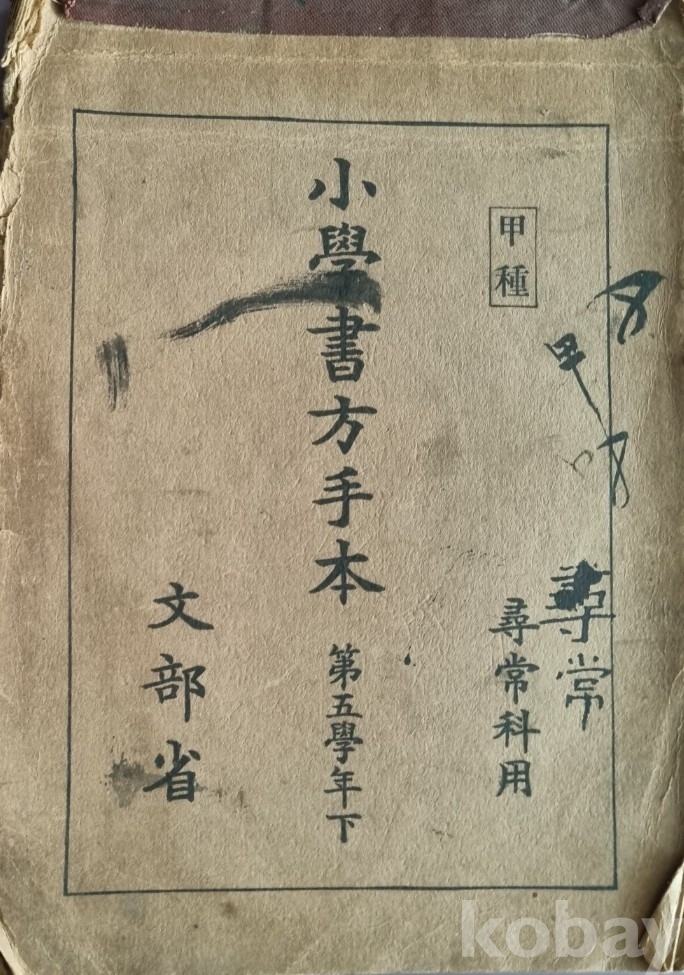 甲種
尋常科用
尋常
小學書方手本 第五學年下
文部省
kobay